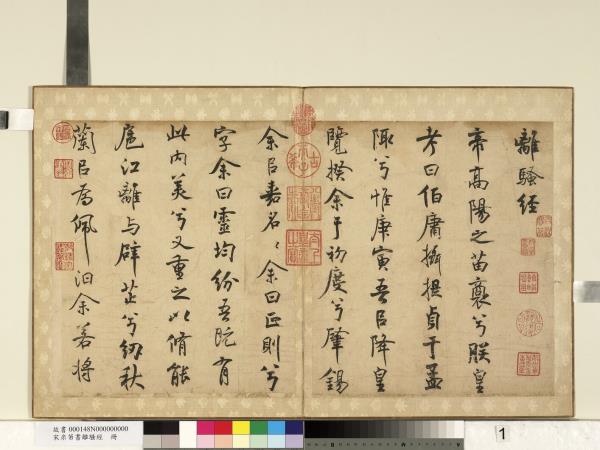 離騷經
帝高陽之苗裔兮朕皇
考曰伯庸攝提貞于孟
陬兮惟庚寅吾㠯降皇
覽揆余于初度兮肇錫
余㠯嘉名〻余曰正則兮
字余曰靈均紛吾既有
此内美兮又重之以脩能
扈江離与辟芷兮紉秋
蘭㠯為佩汩余若將
故書 000148N000000000
宋米芾書離騷經 冊
1